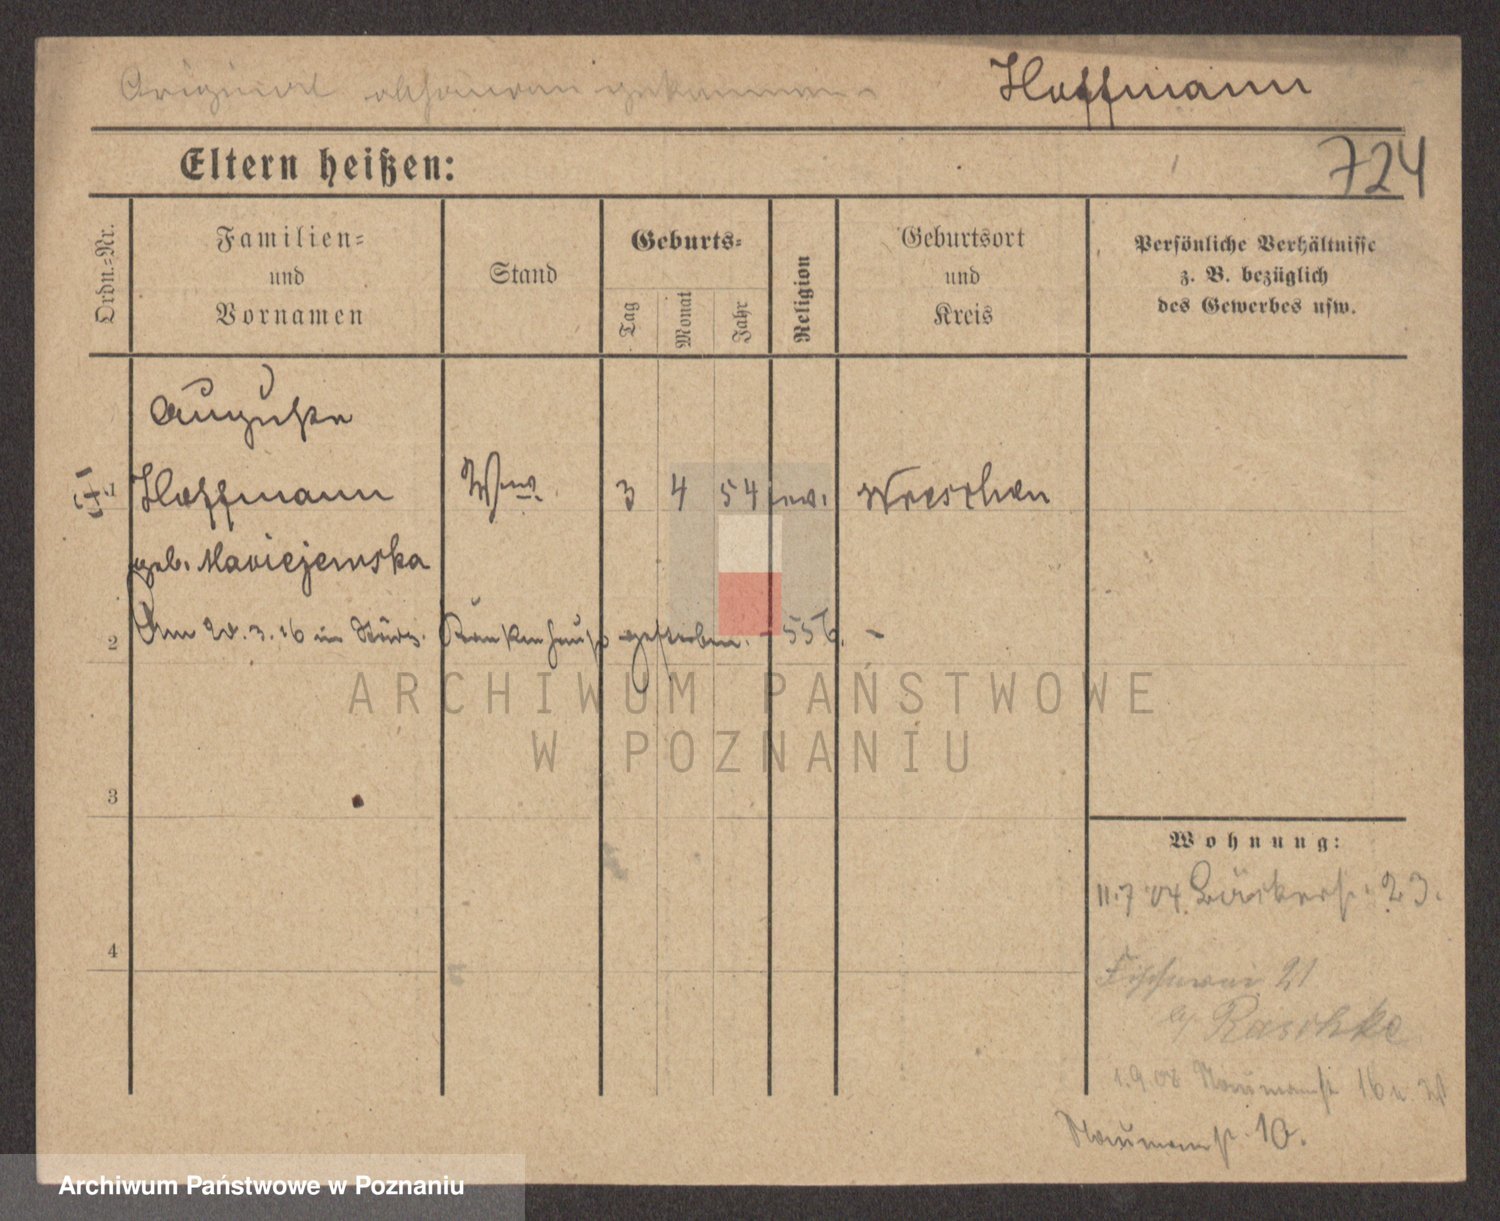 Original abhanden gekommen.
Hoffmann
Eltern heißen:
724
Ordn.=Nr.
Familien=
und
Vornamen
Stand
Geburts=
Tag
Monat
Jahr
Religion
Geburtsort
und
Kreis
Persönliche Verhältnisse
z. B. bezüglich
des Gewerbes usw.
Auguste
(+) 1 Hoffmann Wwe. 3 4 54 ev. Wreschen
geb. Maciejewska
2 Am 20.3.16 im Städt. Krankenhause gestorben. - 556. -
ARCHIWUM PAŃSTWOWE
W POZNANIU
3
Wohnung:
11.7 04. Bäckerstr. 23.
4
Fischerei 21
Raschke
1.9.08 Naumannst 16
Naumannstr. 10.
Archiwum Państwowe w Poznaniu